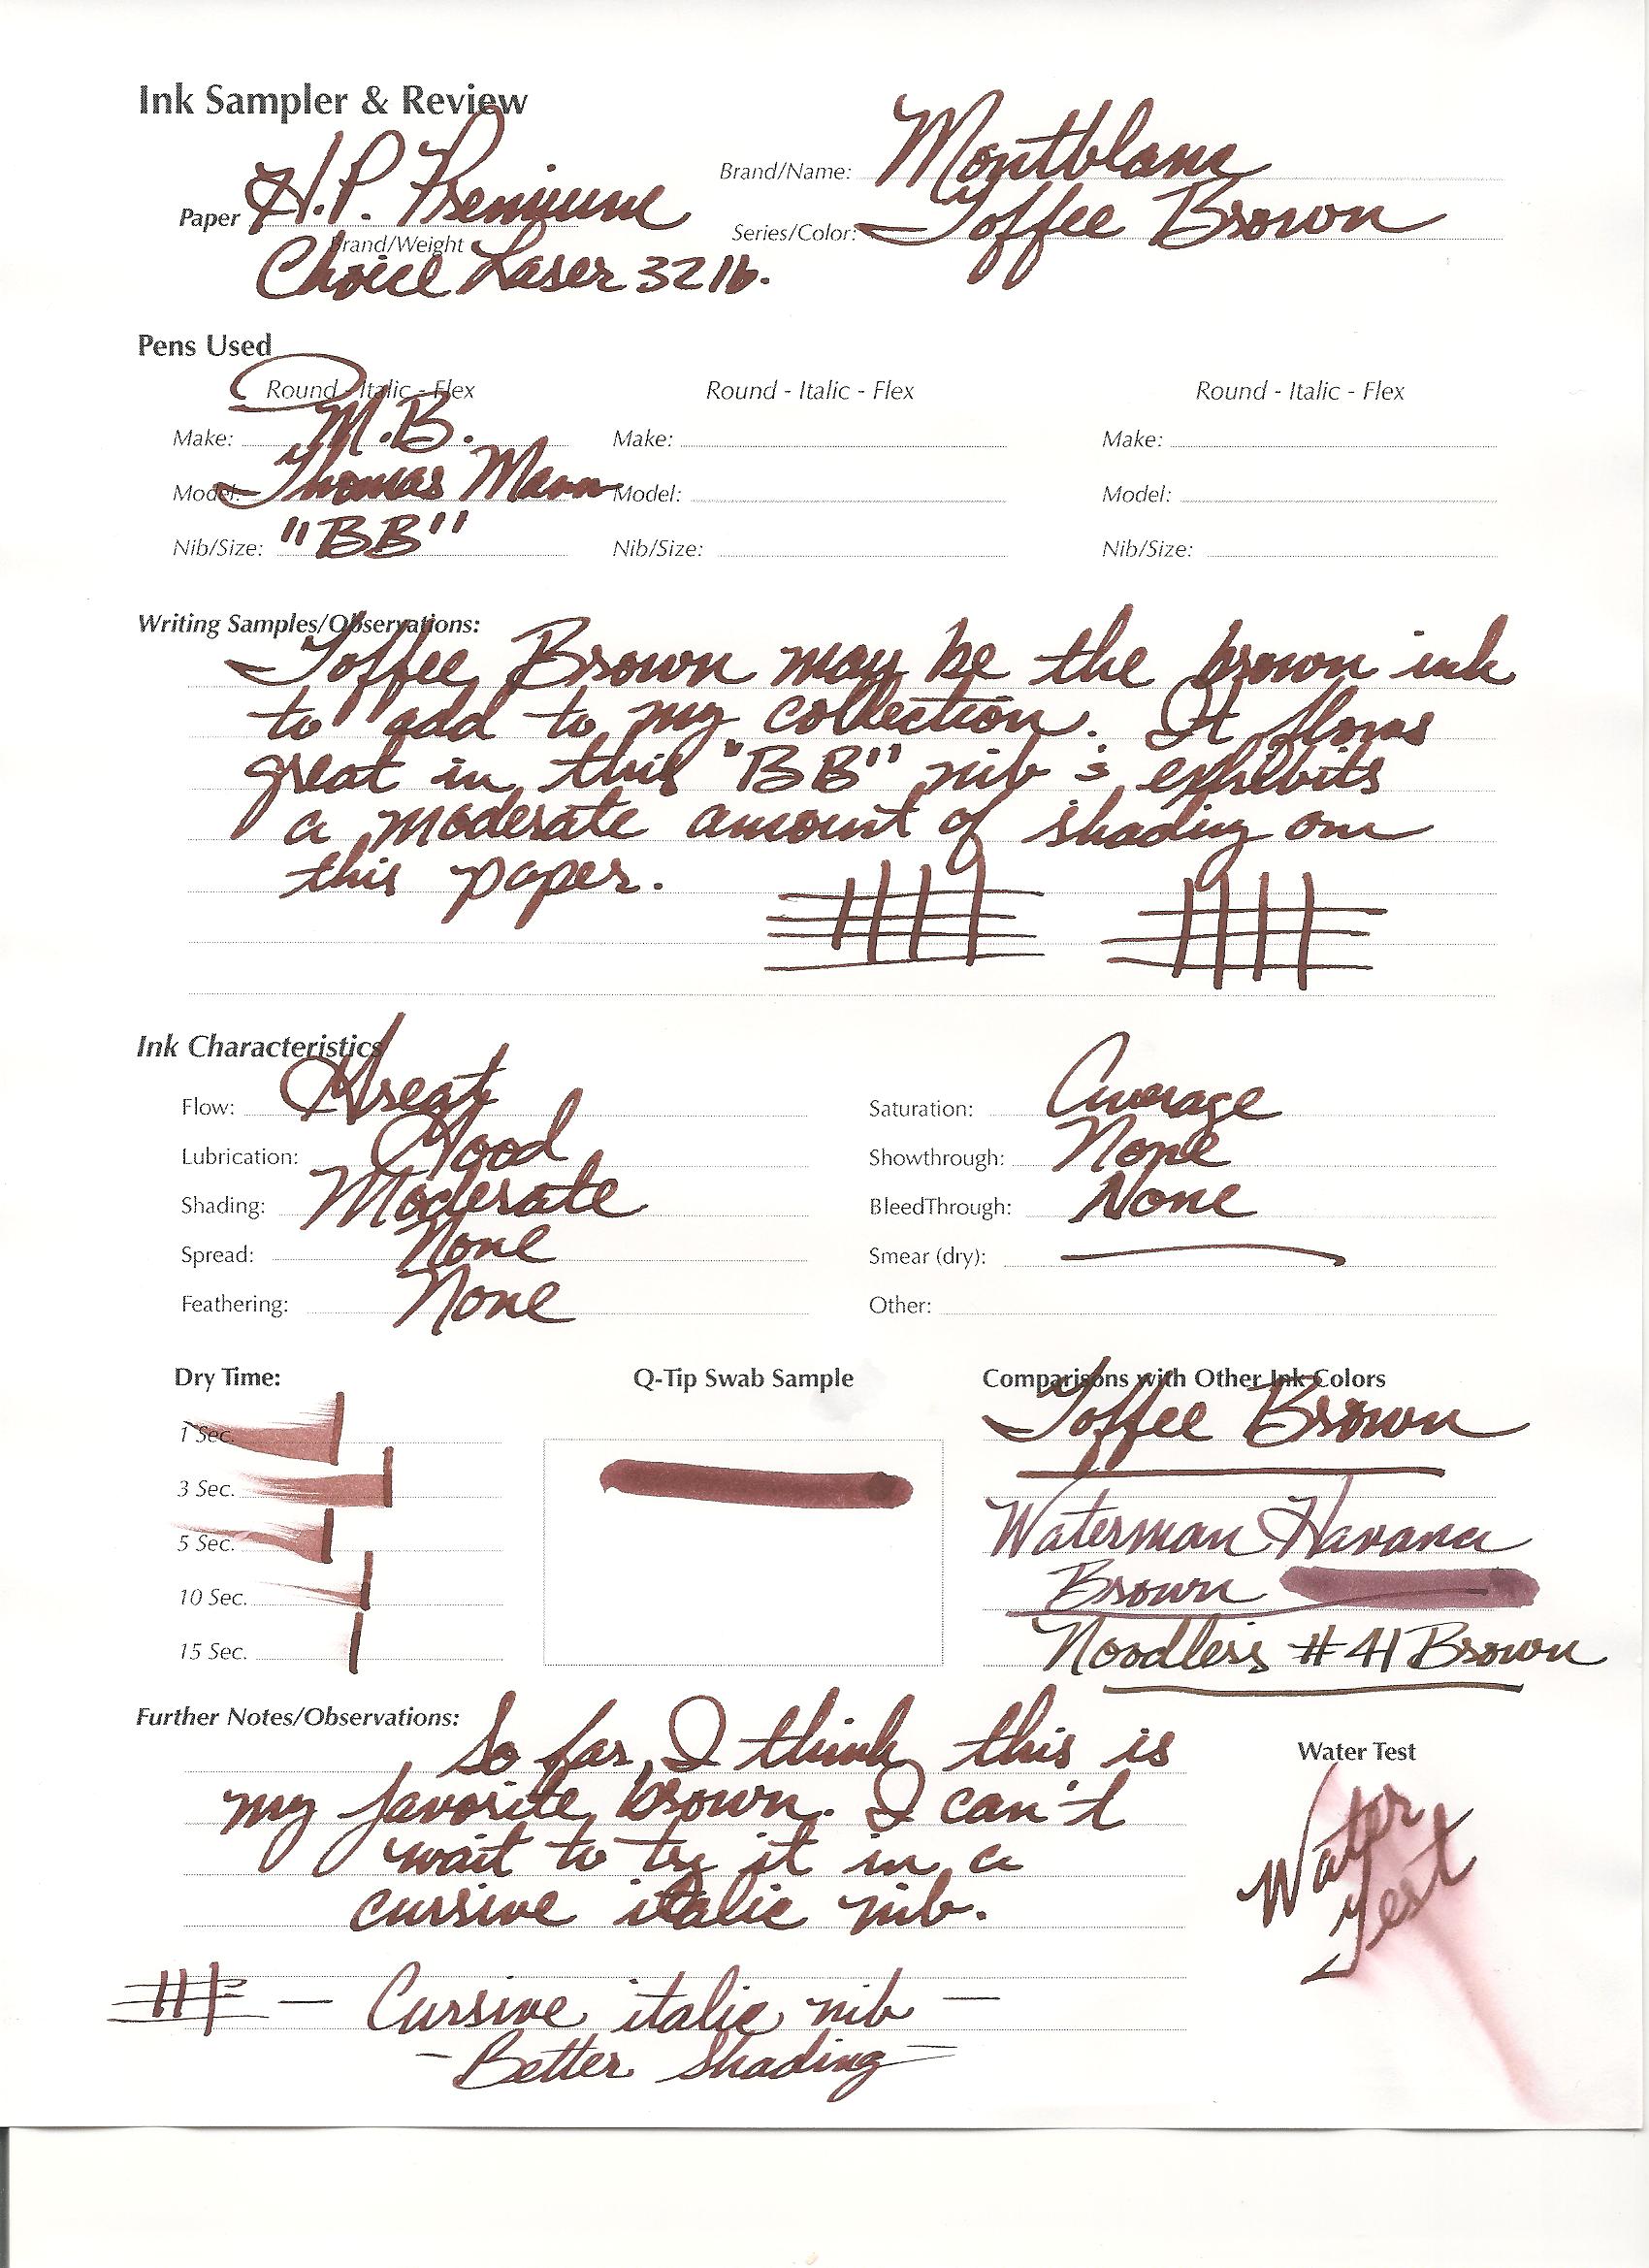 Ink Sampler & Review
Brand/Name: Montblanc
Paper H.P. Premium
Series/Color: Toffee Brown
Brand/Weight
Choice Laser 32 lb.
Pens Used
Round - Italic - Flex Round - Italic - Flex Round - Italic - Flex
Make: M.B. Make: Make:
Model: Thomas Mann Model: Model:
Nib/Size: "BB" Nib/Size: Nib/Size:
Writing Samples/Observations:
Toffee Brown may be the brown ink
to add to my collection. It flows
great in this "BB" nib & exhibits
a moderate amount of shading on
this paper.
Ink Characteristics
Flow: Great Saturation: Average
Lubrication: Good Showthrough: None
Shading: Moderate BleedThrough: None
Spread: None Smear (dry):
Feathering: None Other:
Dry Time: Q-Tip Swab Sample Comparisons with Other Ink Colors
1 Sec. Toffee Brown
3 Sec.
5 Sec. Waterman Havana
10 Sec. Brown
15 Sec. Noodler's #41 Brown
Further Notes/Observations: So far, I think this is
my favorite brown. I can't
wait to try it in a
cursive italic nib.
Water Test
Water
Test
— Cursive italic nib —
- Better shading -